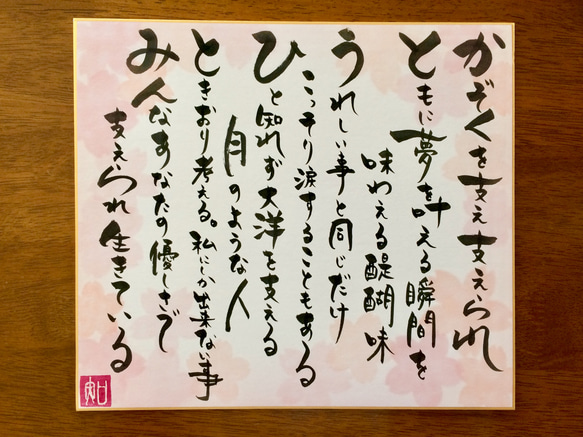 かぞくを支え支えられ
ともに夢を叶える瞬間を
味わえる醍醐味
うれしい事と同じだけ
こっそり涙することもある
ひと知れず大洋を支える
月のような人
ときおり考える。私にしか出来ない事
みんなあなたの優しさで
支えられ生きている